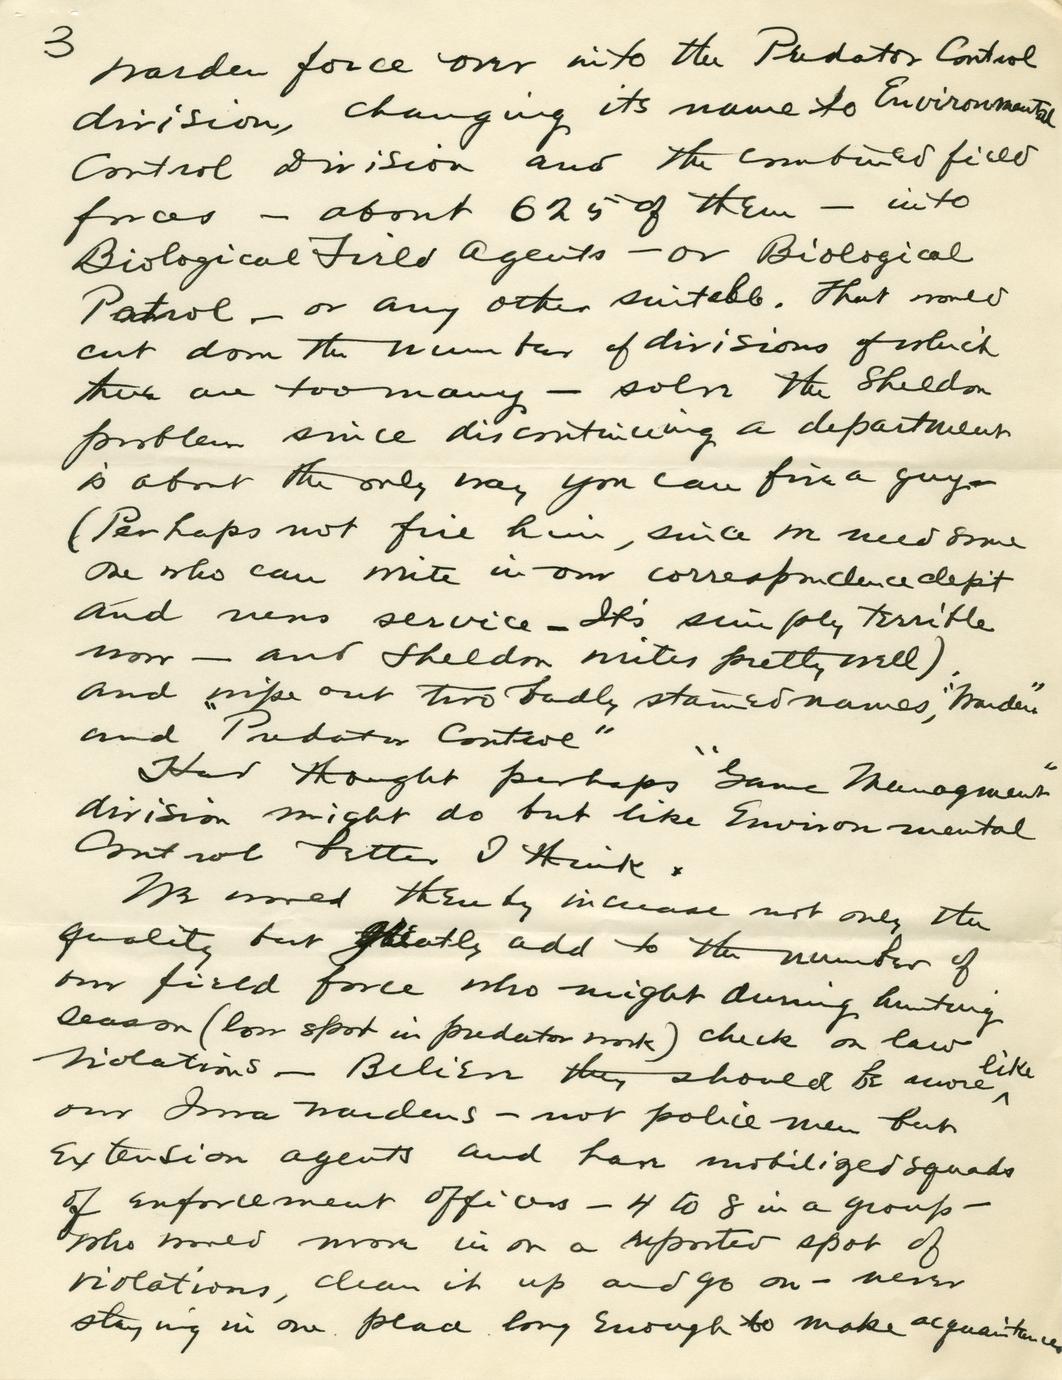 3
warden force over into the Predator Control
division, changing its name to Environmental
Control Division and the combined field
forces — about 625 of them — into
Biological Field Agents — or Biological
Patrol — or any other suitable. That would
cut down the number of divisions of which
there are too many — solve the Sheldon
problem since discontinuing a department
is about the only way you can fire a guy—
(Perhaps not fire him, since we need some
one who can write in our correspondence dep't
and news service — It's simply terrible
now — and Sheldon writes pretty well).
and wipe out two badly stained names, "Warden"
and "Predator Control"
Had thought perhaps "Game Managment"
division might do but like Environmental
Control better I think.
We would thereby increase not only the
quality but greatly add to the number of
our field force who might during hunting
season (low spot in predator work) check on law
violations — Believe they should be more like
our Iowa wardens — not police men but
Extension agents and have mobilized squads
of enforcement officers — 4 to 8 in a group —
who would move in on a reported spot of
violations, clean it up and go on — never
staying in one place long enough to make acquaintances